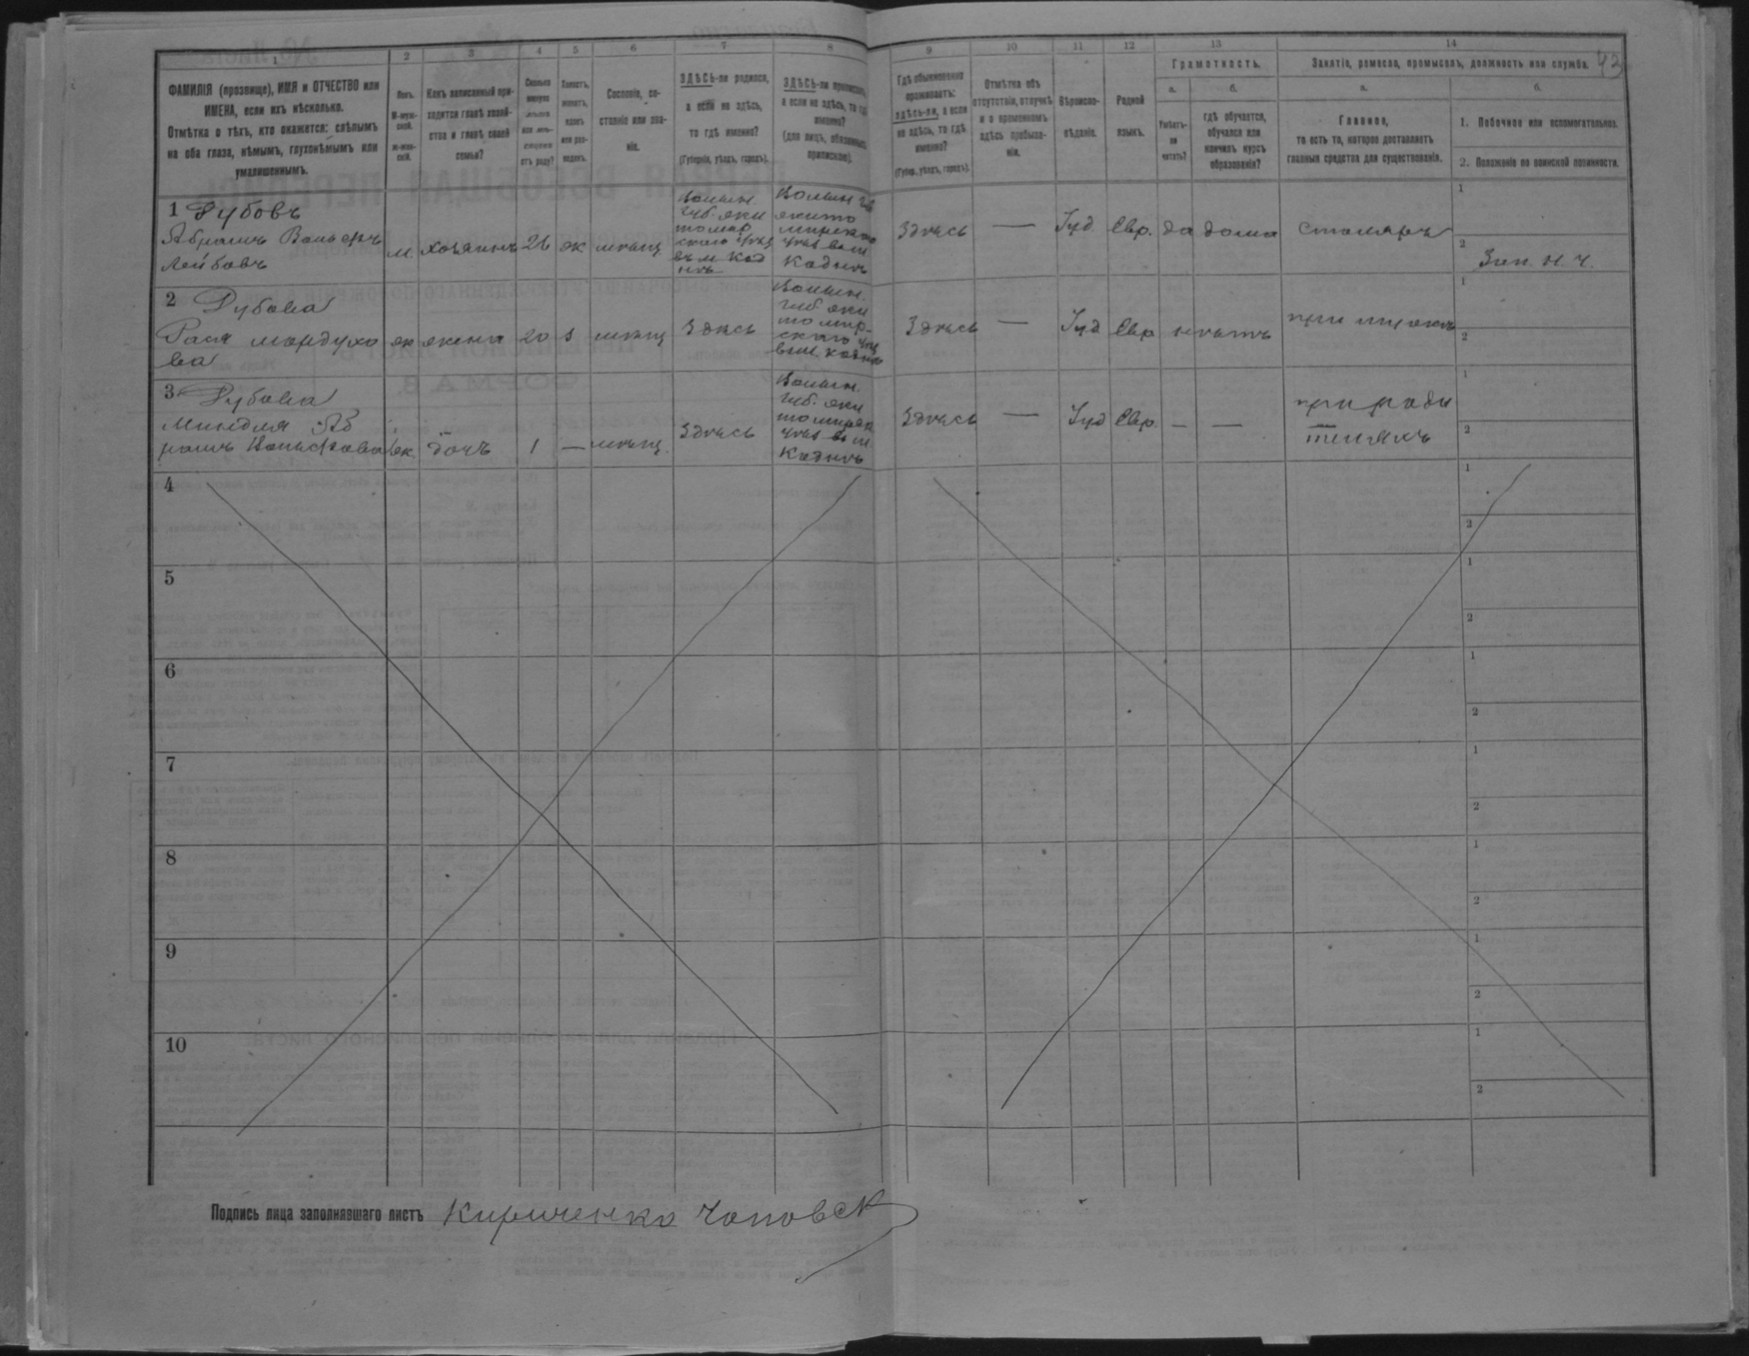 43
1 2 3 4 5 6 7 8 9 10 11 12 13 14
ФАМИЛІЯ (прозвище), ИМЯ и ОТЧЕСТВО или
ИМЕНА, если ихъ нѣсколько.
Отмѣтка о тѣхъ, кто окажется: слѣпымъ
на оба глаза, нѣмымъ, глухонѣмымъ или
умалишеннымъ.
Полъ.
М-муж-
ской.
Ж-жен-
скій.
Какъ записанный при-
ходится главѣ хозяй-
ства и главѣ своей
семьи?
Сколько
минуло
лѣтъ
или мѣ-
сяцевъ
отъ роду?
Холостъ,
женатъ,
вдовъ
или раз-
веденъ.
Сословіе, со-
стояніе или зва-
ніе.
ЗДѢСЬ-ли родился,
а если не здѣсь,
то гдѣ именно?
(Губернія, уѣздъ, городъ).
ЗДѢСЬ-ли приписанъ,
а если не здѣсь, то гдѣ
именно?
(для лицъ, обязанныхъ
припискою).
Гдѣ обыкновенно
проживаетъ:
здѣсь-ли, а если
не здѣсь, то гдѣ
именно?
(Губер., уѣздъ, городъ).
Отмѣтка объ
отсутствіи, отлучкѣ
и о временномъ
здѣсь пребыва-
ніи.
Вѣроиспо-
вѣданіе.
Родной
языкъ.
Грамотность.
а.
Умѣетъ-
ли
читать?
б.
гдѣ обучается,
обучался или
кончилъ курсъ
образованія?
Занятіе, ремесло, промыселъ, должность или служба.
а.
Главное,
то есть то, которое доставляетъ
главныя средства для существованія.
б.
1. Побочное или вспомогательное.
2. Положеніе по воинской повинности.
1 Рубовъ
Абрамъ
Лейбовъ
м. хозяинъ 26 ж мѣщ.
Волын.
Губ. жи
томир
скаго уѣз
Волын. Гу
житомирскаго
Кодня
здѣсь — Іуд. Евр. да дома столяръ
1
2
Зап. н. ч.
2 Рубова
Рася Мордухо
ва
ж жена 20 з мѣщ Здѣсь
Волын.
Губ. жи
томир-
скаго уѣз
здѣсь — Іуд Евр нѣтъ при мужѣ
1
2
3 Рубова
Миндля Аб
рамъ
ж. дочь 1 — мѣщ. Здѣсь
Волын.
Губ. жи
томирск
Кодня
здѣсь — Іуд Евр. — — при роди
теляхъ
1
2
4 1 2
5 1 2
6 1 2
7 1 2
8 1 2
9 1 2
10 1 2
Подпись лица заполнявшаго листъ Кириченко